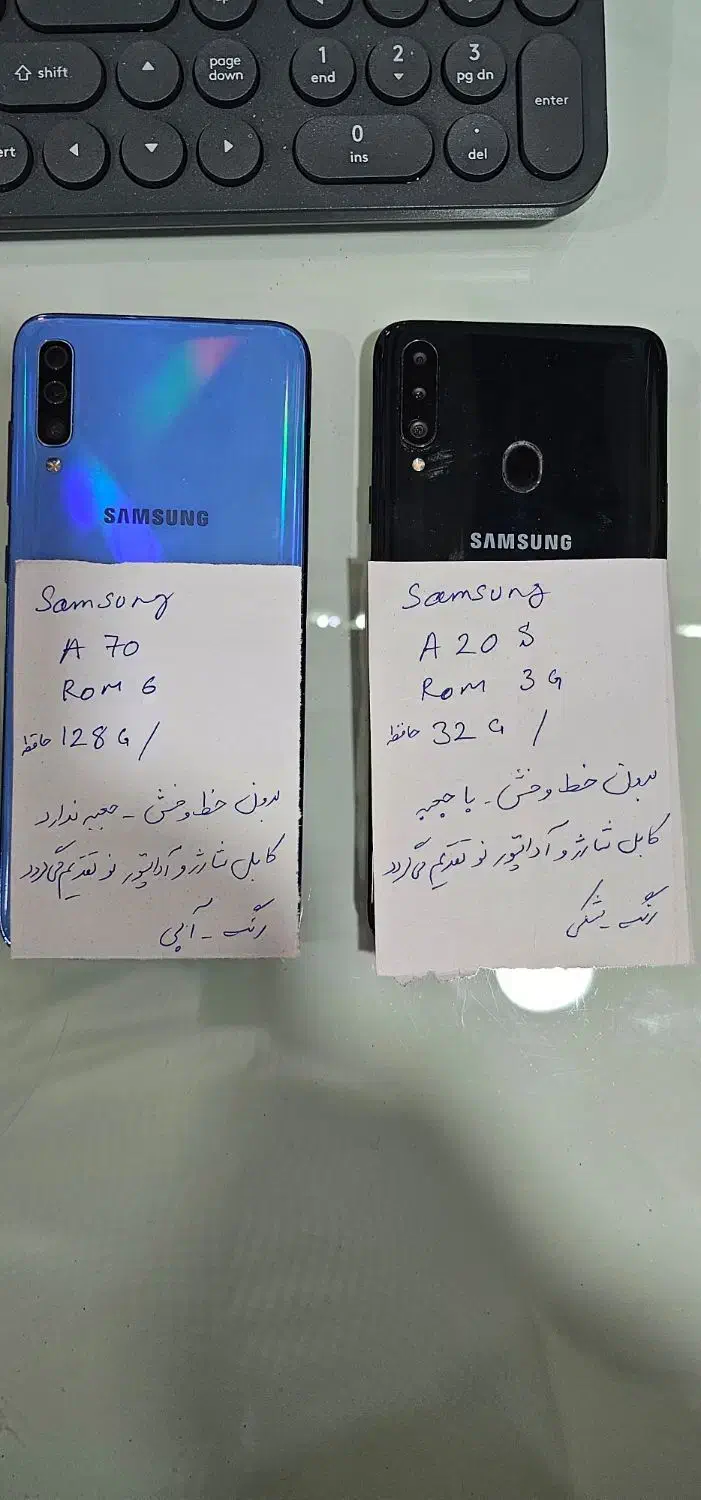 shift
page
down
1
end
2
3
pg dn
enter
0
ins
.
del
SAMSUNG
Samsung
A 70
Rom 6
حافظه 128 G /
بدون خط و خش - جعبه ندارد
کابل شارژ و آداپتور نو تقدیم می گردد
رنگ - آبی
SAMSUNG
Samsung
A 20 S
Rom 3 G
حافظه 32 G /
بدون خط و خش - با جعبه
کابل شارژ و آداپتور نو تقدیم می گردد
رنگ - مشکی